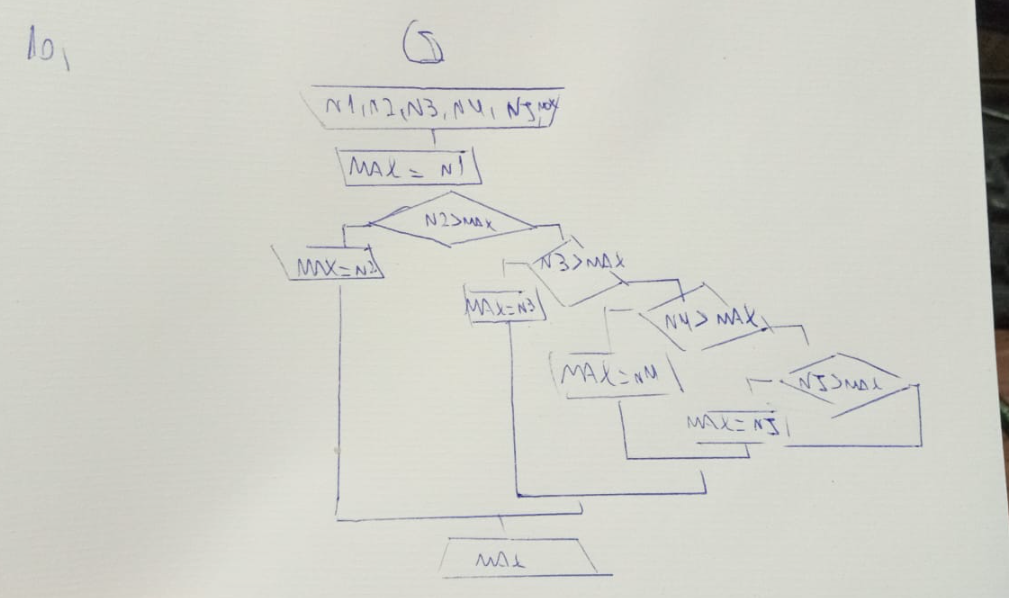 10,
N1, N2, N3, N4, N5, MAX
MAX = N1
N2>MAX
MAX=N2
N3>MAX
MAX=N3
N4>MAX
MAX=N4
N5>MAX
MAX=N5
MAX